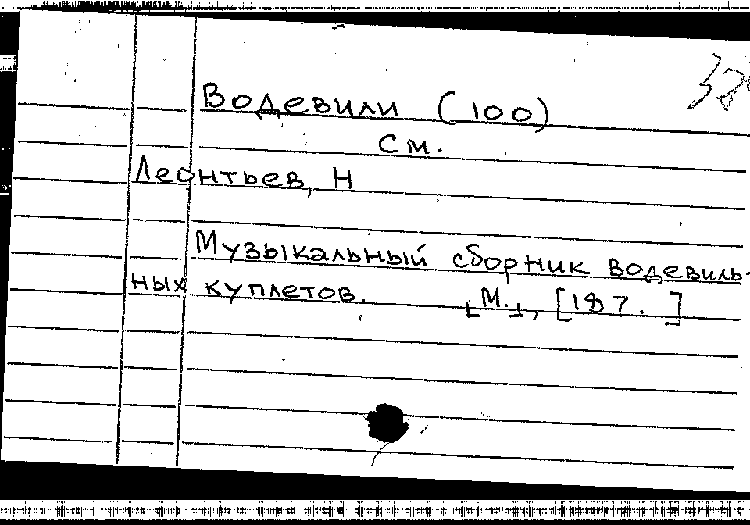 Водевили (100)
См.
Леонтьев, Н
Музыкальный сборник водевиль-
ных куплетов. [М.], [187. ]